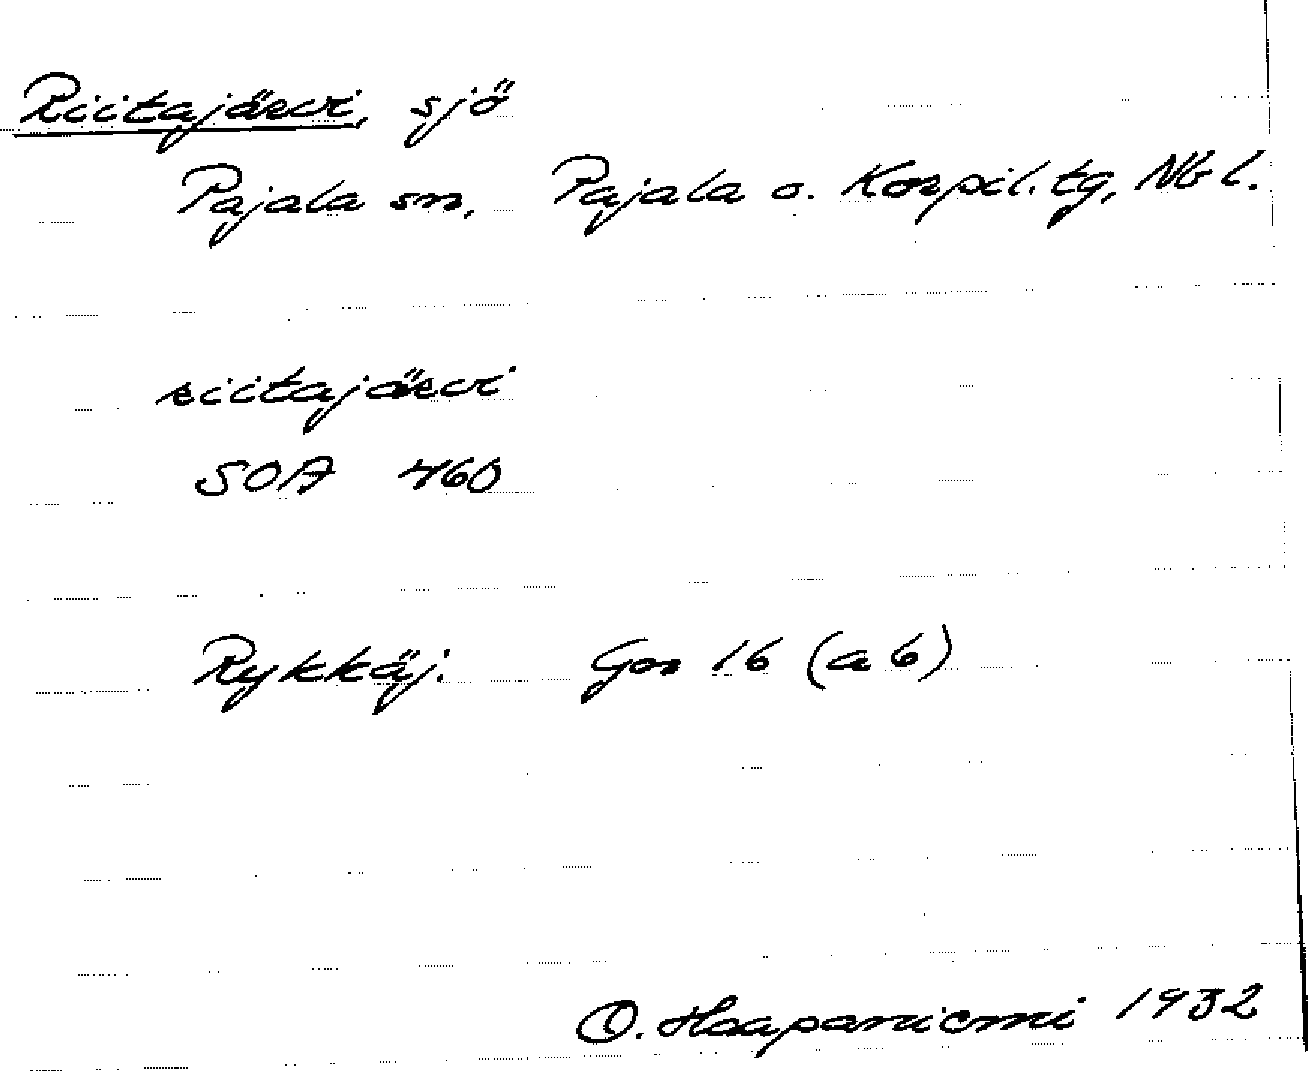 Riitajärvi, sjö
Pajala sn, Pajala o. Korpil. tg, Nb l.
riitajärvi
SOA 460
Rykkäj. Gor 16 (a 6)
O. Haapaniemi 1932